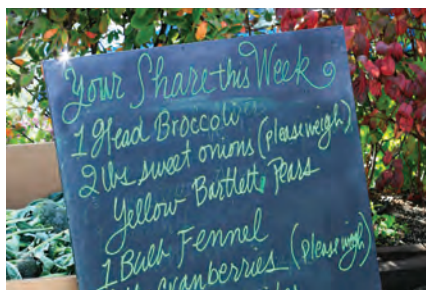 Your Share this Week
1 Head Broccoli
2 lbs sweet onions (please weigh)
Yellow Bartlett Pears
1 Bulb Fennel
cranberries (please weigh)